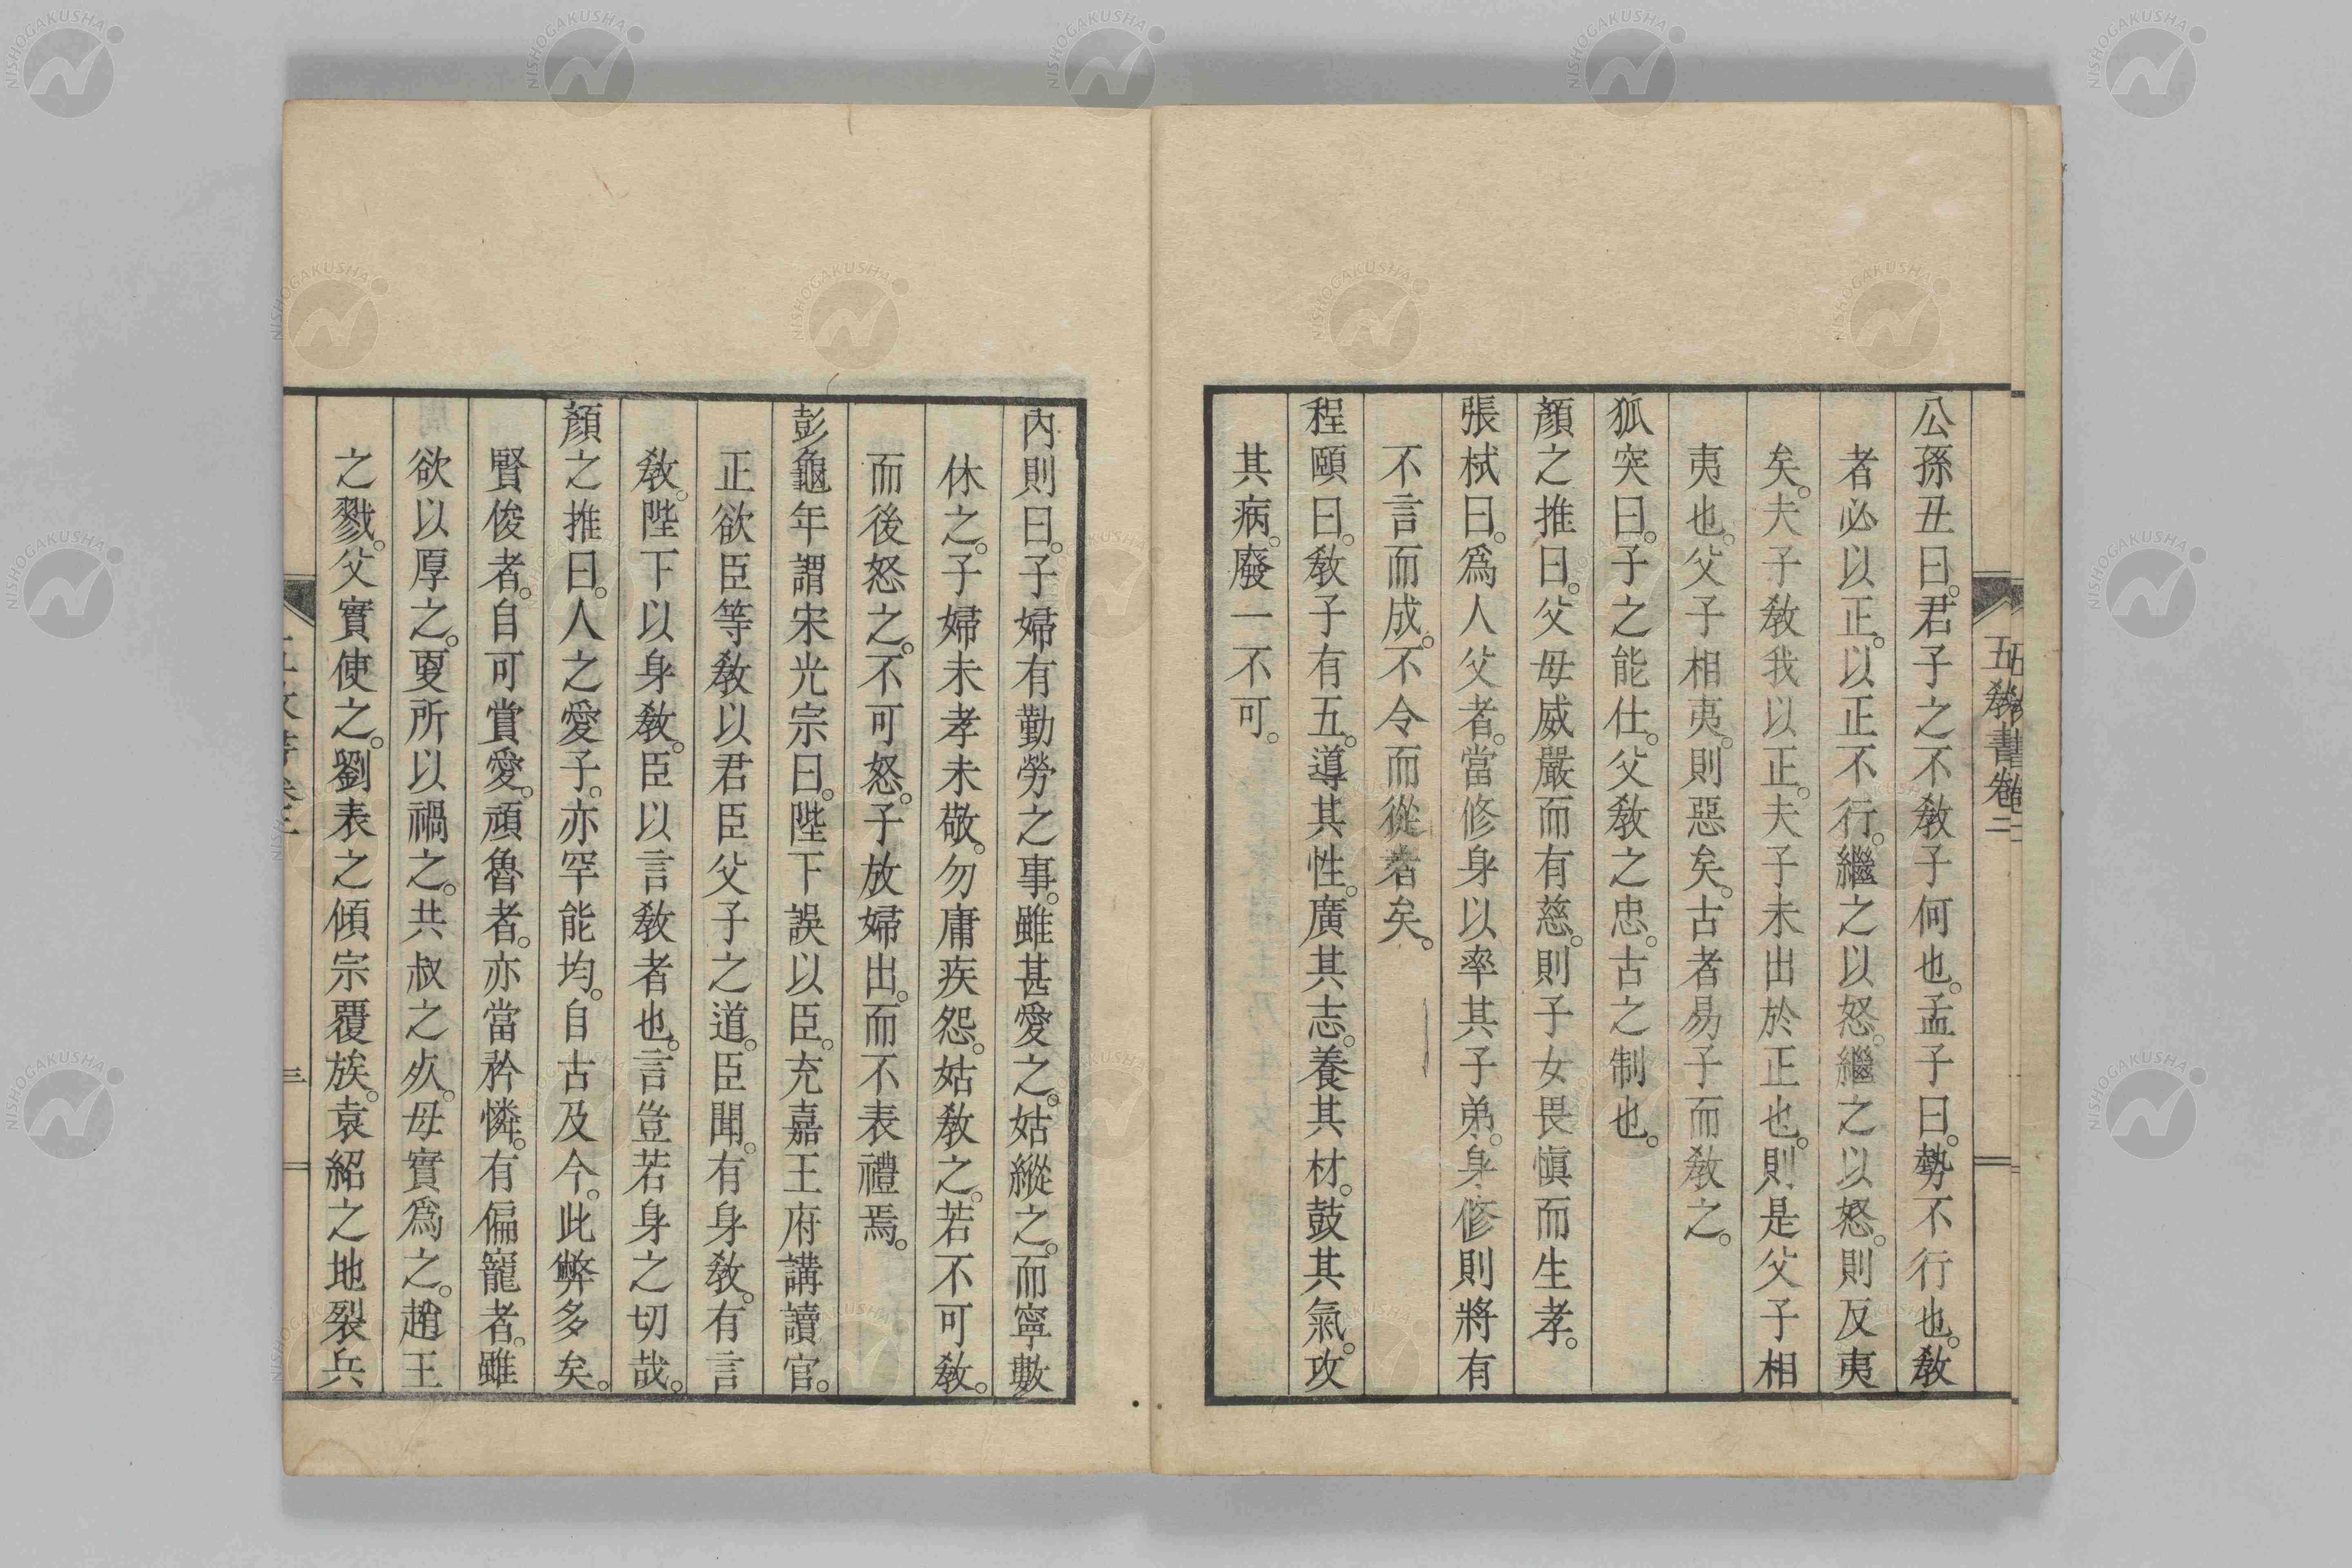 五教書卷二
公孫丑曰。君子之不敎子何也。孟子曰。勢不行也。敎
者必以正。以正不行。繼之以怒。繼之以怒。則反夷
矣。夫子敎我以正。夫子未出於正也。則是父子相
夷也。父子相夷。則惡矣。古者易子而敎之。
狐突曰。子之能仕。父敎之忠。古之制也。
顏之推曰。父母威嚴而有慈。則子女畏愼而生孝。
張栻曰。爲人父者。當修身以率其子弟。身修則將有
不言而成。不令而從者矣。
程頤曰。敎子有五。導其性。廣其志。養其材。鼓其氣。攻
其病。廢一不可。
內則曰。子婦有勤勞之事。雖甚愛之。姑縱之。而寧數
休之。子婦未孝未敬。勿庸疾怨。姑敎之。若不可敎。
而後怒之。不可怒。子放婦出。而不表禮焉。
彭龜年謂宋光宗曰。陛下誤以臣。充嘉王府講讀官。
正欲臣等敎以君臣父子之道。臣聞。有身敎。有言
敎。陛下以身敎。臣以言敎者也。言豈若身之切哉。
顏之推曰。人之愛子。亦罕能均。自古及今。此弊多矣。
賢俊者。自可賞愛。頑魯者。亦當矜憐。有偏寵者。雖
欲以厚之。更所以禍之。共叔之死。母實爲之。趙王
之戮。父實使之。劉表之傾宗覆族。袁紹之地裂兵
三
NISHOGAKUSHA